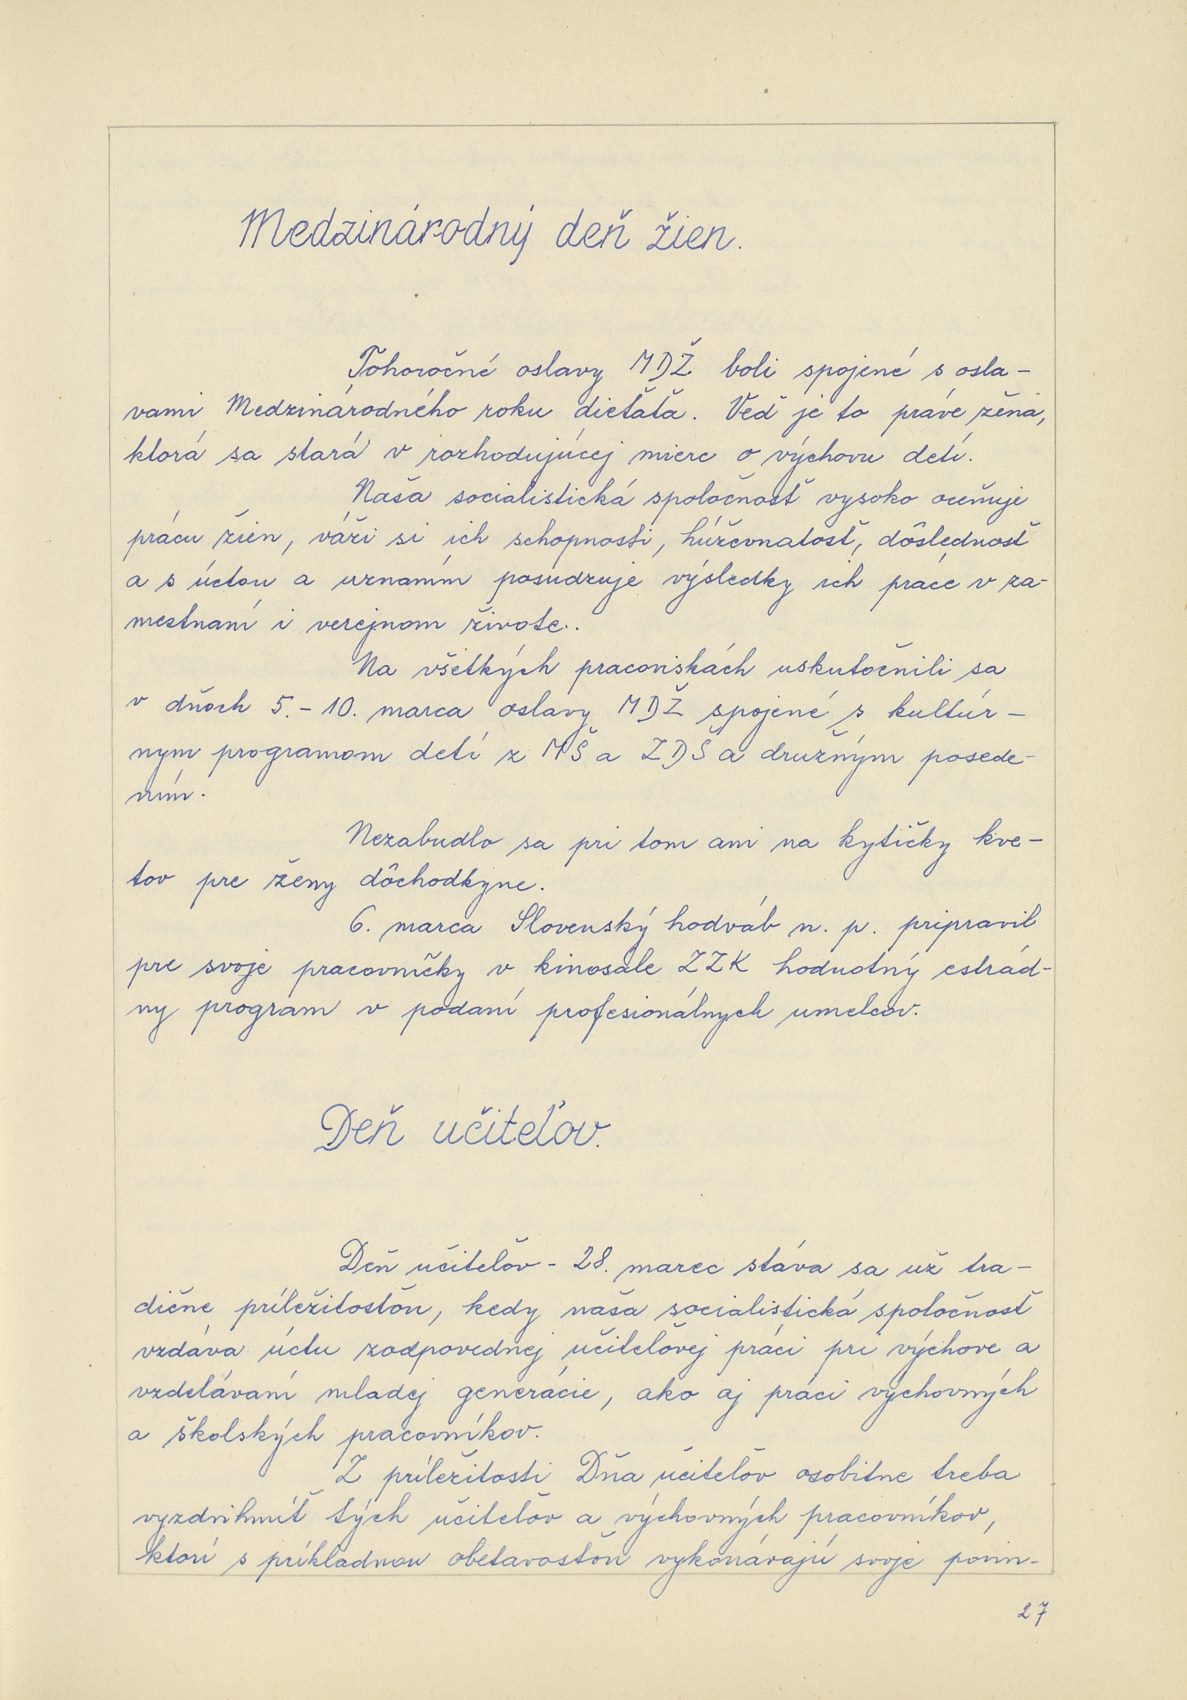 Medzinárodný deň žien.
Tohoročné oslavy MDŽ boli spojené s osla-
vami Medzinárodného roku dieťaťa. Veď je to práve žena,
ktorá sa stará v rozhodujúcej miere o výchovu detí.
Naša socialistická spoločnosť vysoko oceňuje
prácu žien, váži si ich schopnosti, húževnatosť, dôslednosť
a s úctou a uznaním posudzuje výsledky ich práce v za-
mestnaní i verejnom živote.
Na všetkých pracoviskách uskutočnili sa
v dňoch 5. - 10. marca oslavy MDŽ spojené s kultúr-
nym programom detí z MŠ a ZDŠ a družným posede-
ním.
Nezabudlo sa pri tom ani na kytičky kve-
tov pre ženy dôchodkyne.
6. marca Slovenský hodváb n. p. pripravil
pre svoje pracovníčky v kinosále ZZK hodnotný estrád-
ny program v podaní profesionálnych umelcov.
Deň učiteľov.
Deň učiteľov - 28. marec stáva sa už tra-
dične príležitosťou, kedy naša socialistická spoločnosť
vzdáva úctu zodpovednej učiteľovej práci pri výchove a
vzdelávaní mladej generácie, ako aj práci výchovných
a školských pracovníkov.
Z príležitosti Dňa učiteľov osobitne treba
vyzdvihnúť tých učiteľov a výchovných pracovníkov,
ktorí s príkladnou obetavosťou vykonávajú svoje povin-
27